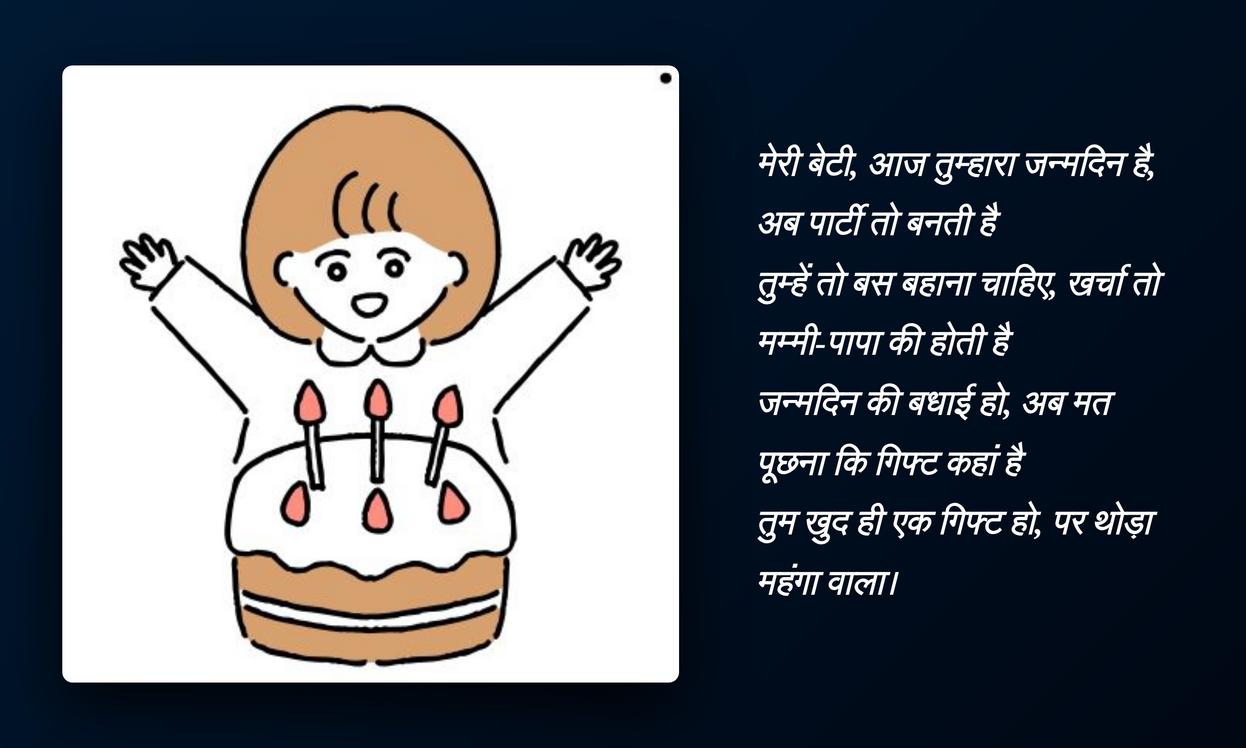 मेरी बेटी, आज तुम्हारा जन्मदिन है,
अब पार्टी तो बनती है
तुम्हें तो बस बहाना चाहिए, खर्चा तो
मम्मी-पापा की होती है
जन्मदिन की बधाई हो, अब मत
पूछना कि गिफ्ट कहां है
तुम खुद ही एक गिफ्ट हो, पर थोड़ा
महंगा वाला।